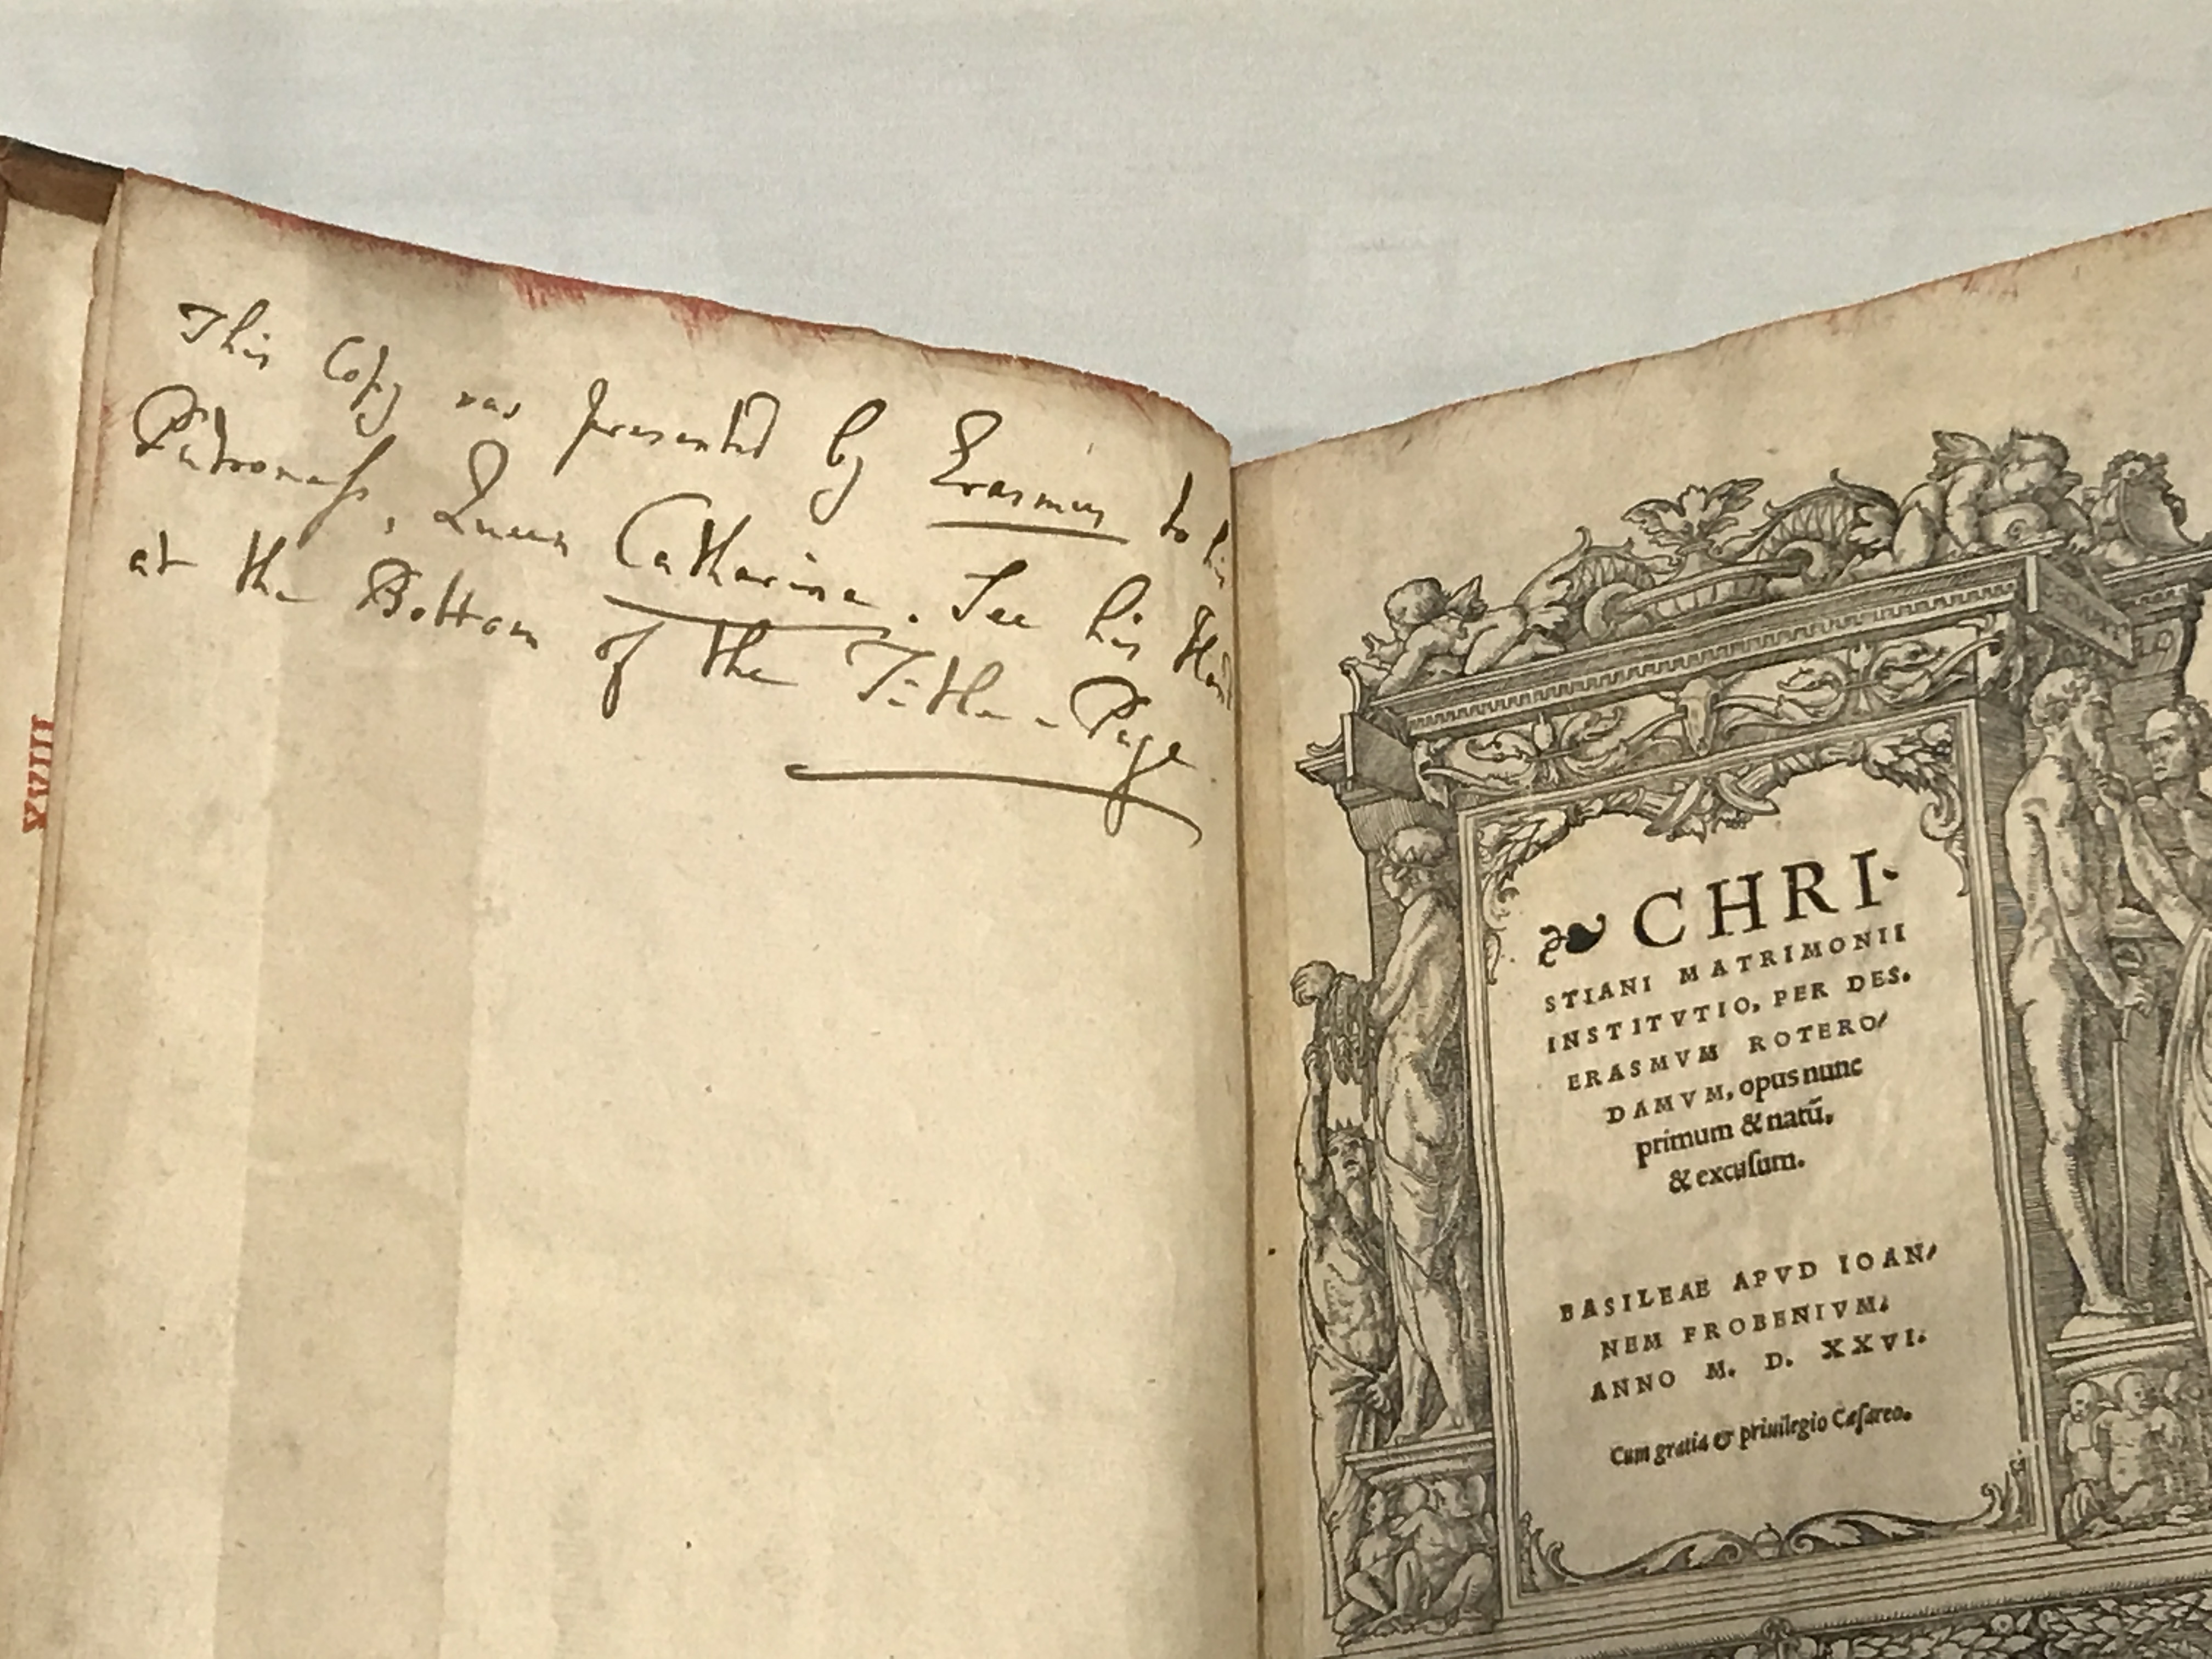 This Copy was presented by Erasmus to his
Patroness, Queen Catharine. See his Hand
at the Bottom of the Title-Page
XVIII
❧ CHRI-
STIANI MATRIMONII
INSTITVTIO, PER DES.
ERASMVM ROTERO/
DAMVM, opus nunc
primum & natũ,
& excuſum.
BASILEAE APVD IOAN/
NEM FROBENIVM,
ANNO M. D. XXVI.
Cum gratia & priuilegio Cæſareo.